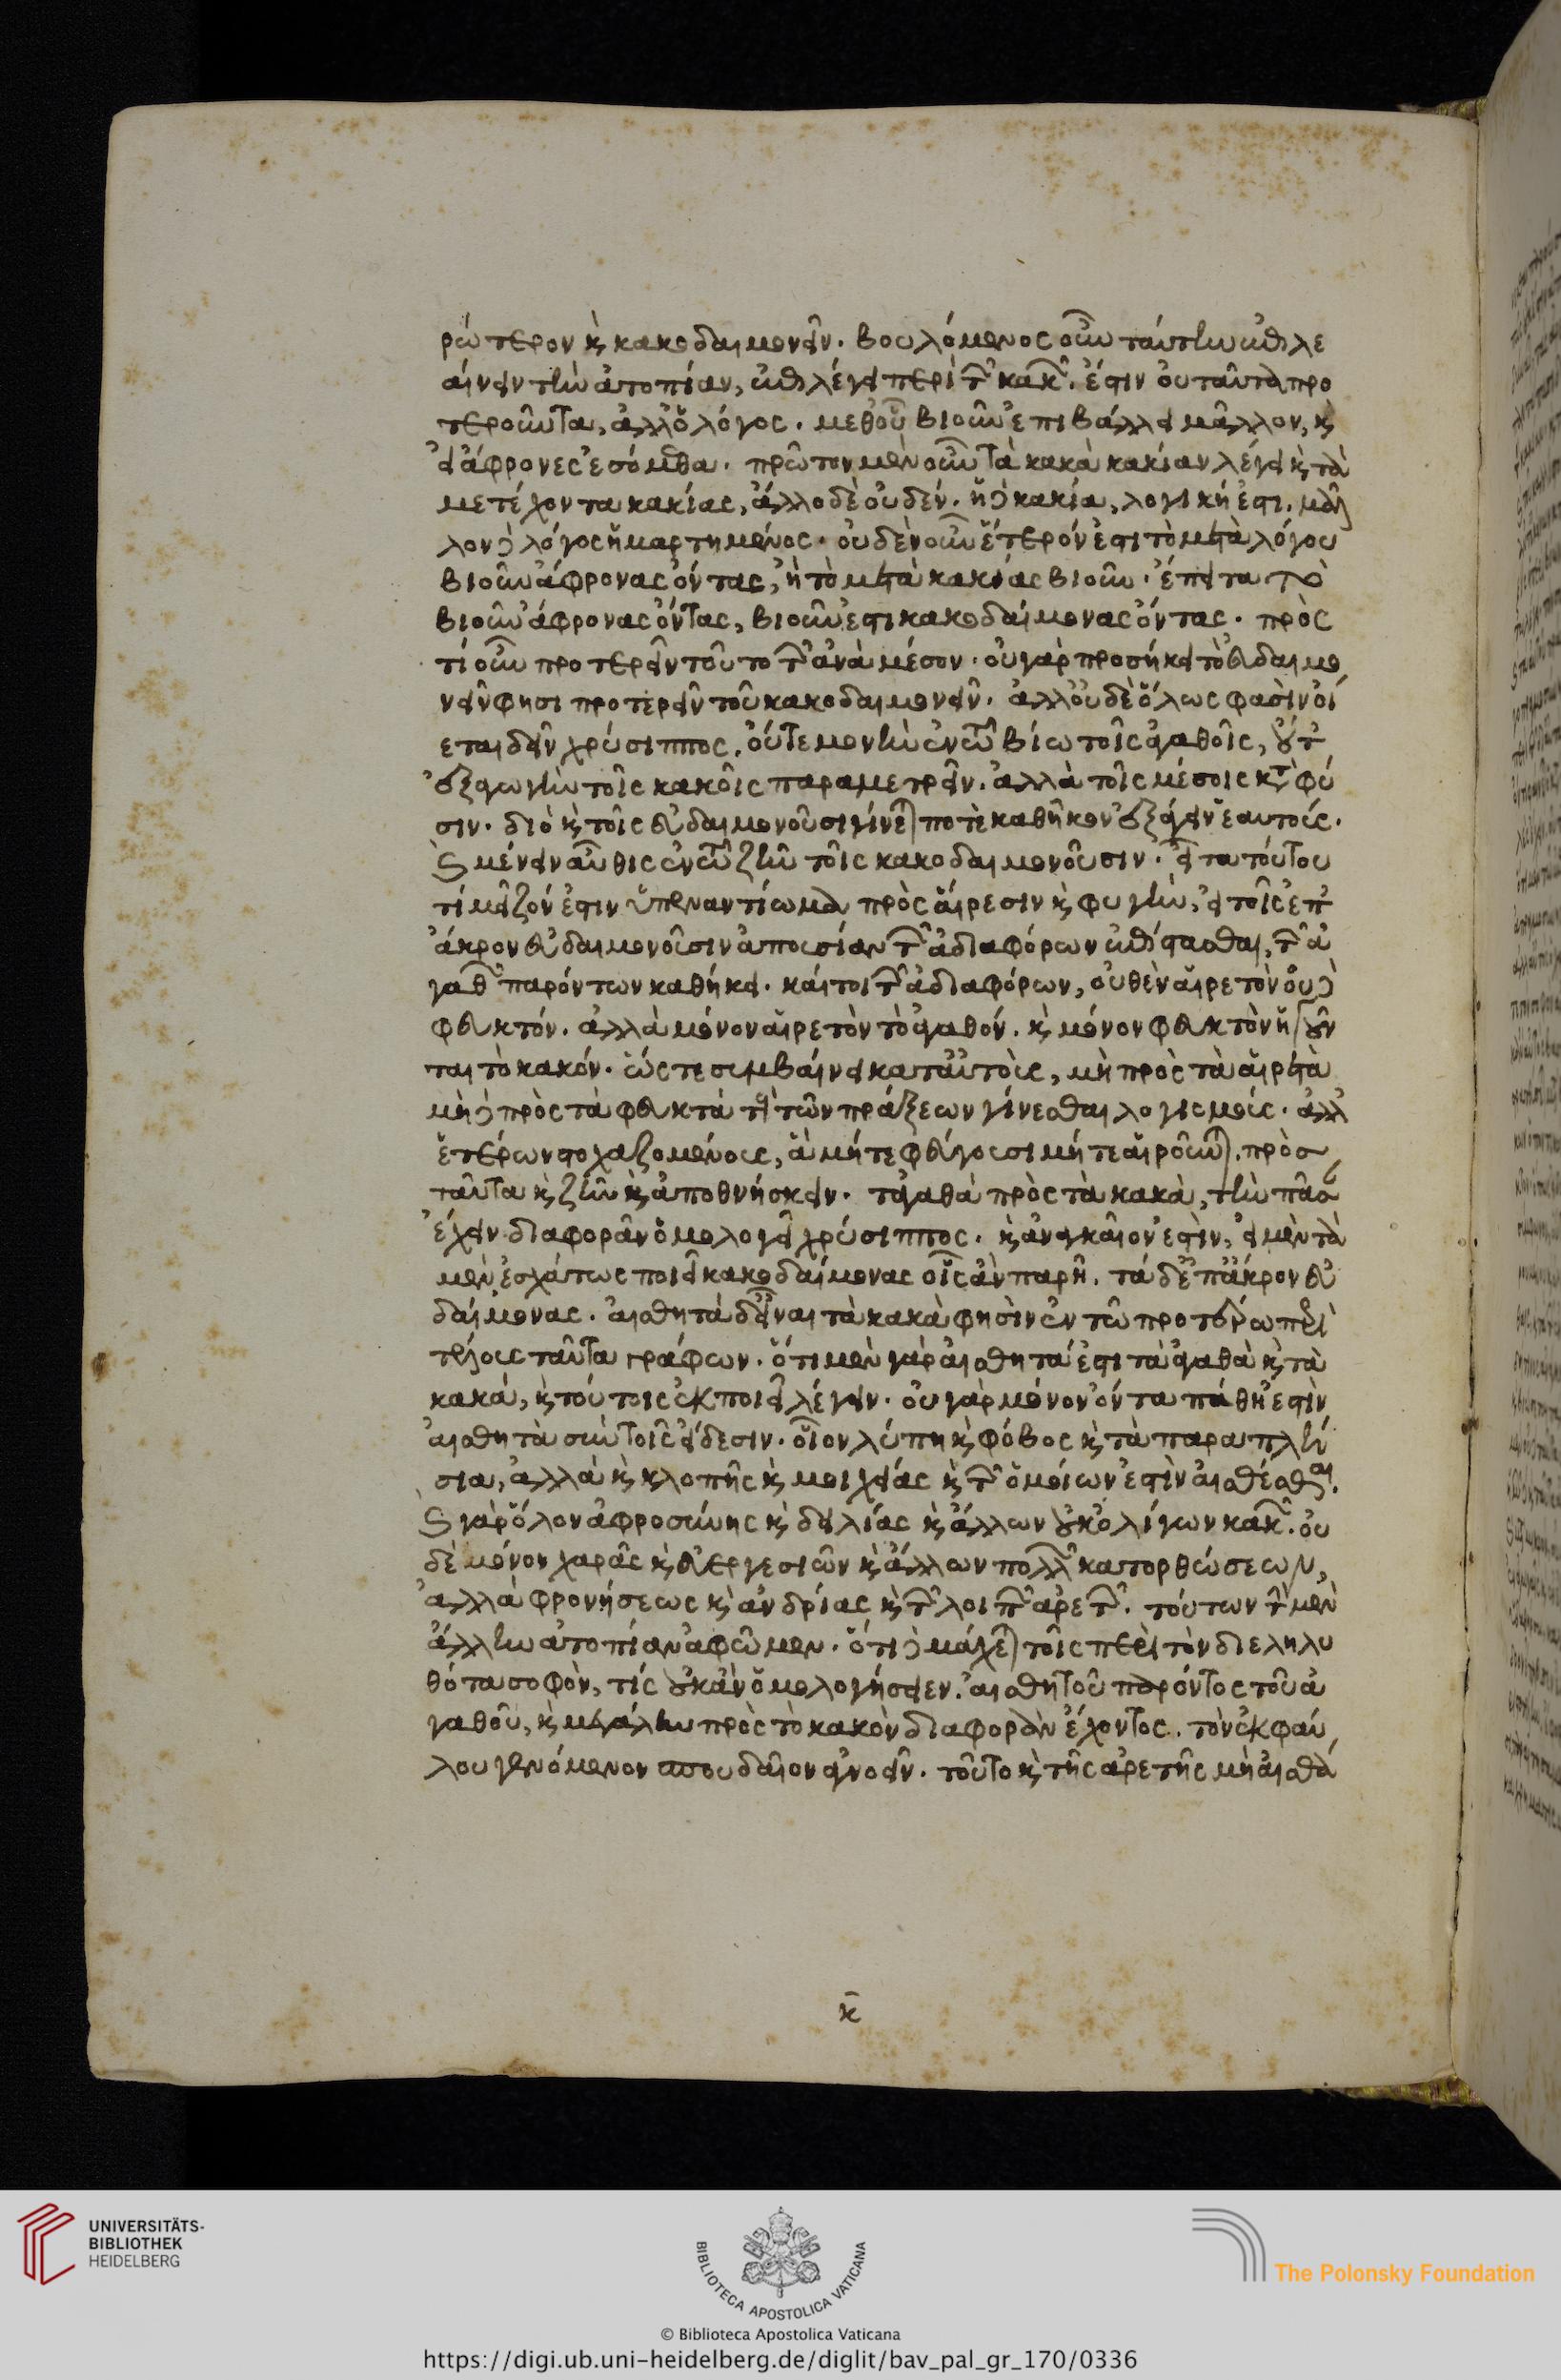 ρώτερον κὶ κακοδαιμονεῖν. βουλόμενος οὖν ταύτην ἐκλε
αίνειν τὴν ἀτοπίαν, ἐπιλέγει περὶ τῶν κακῶν. ἔστιν οὐ ταῦτα προ
τεροῦντα, ἀλλ' ὁ λόγος. μεθ' οὗ βιοῦν ἐπιβάλλει μᾶλλον, κὶ
εἰ ἄφρονες ἐσόμεθα. πρῶτον μὲν οὖν τὰ κακὰ κακίαν λέγει κὶ τὰ
μετέχοντα κακίας, ἄλλο δὲ οὐδέν. ἡ δὲ κακία, λογική ἐστι. μᾶλ
λον δὲ λόγος ἡμαρτημένος. οὐδὲν οὖν ἕτερόν ἐστι τὸ μετὰ λόγου
βιοῦν ἄφρονας ὄντας, ἢ τὸ μετὰ κακίας βιοῦν. ἔπειτα τὸ
βιοῦν ἄφρονας ὄντας, βιοῦν ἐστι κακοδαίμονας ὄντας. πρὸς
τί οὖν προτερεῖν τοῦτο τῶν ἀνὰ μέσον. οὐ γὰρ προσήκει τὸ εὐδαιμο
νεῖν φησι προτερεῖν τοῦ κακοδαιμονεῖν. ἀλλ' οὐδὲ ὅλως φασὶν οἴ
εται δεῖν χρύσιππος. οὔτε μονὴν ἐν τῷ βίῳ τοῖς ἀγαθοῖς, οὔτ'
ἐξαγωγὴν τοῖς κακοῖς παραμετρεῖν. ἀλλὰ τοῖς μέσοις κατὰ φύ
σιν. διὸ κὶ τοῖς εὐδαιμονοῦσι γίνεται ποτὲ καθῆκον ἐξάγειν ἑαυτούς.
κὶ μένειν αὖθις ἐν τῷ ζῆν τοῖς κακοδαιμονοῦσιν. εἶτα τούτου
τί μεῖζόν ἐστιν ὑπεναντίωμα πρὸς αἵρεσιν κὶ φυγὴν, εἰ τοῖς ἐπ'
ἄκρον εὐδαιμονοῦσιν ἀπουσίαν τῶν ἀδιαφόρων ἐφίστασθαι, τῶν ἀ
γαθῶν παρόντων καθήκει. καίτοι τῶν ἀδιαφόρων, οὐθὲν αἱρετὸν οὐδὲ
φευκτόν. ἀλλὰ μόνον αἱρετὸν τὸ ἀγαθόν. κὶ μόνον φευκτὸν ἡγοῦν
ται τὸ κακόν. ὥστε συμβαίνει κατ' αὐτοὺς, μὴ πρὸς τὰ αἱρετὰ
μὴ δὲ πρὸς τὰ φευκτὰ τοὺς τῶν πράξεων γίνεσθαι λογισμούς. ἀλλ'
ἑτέρων στοχαζομένους, ἃ μήτε φεύγουσι μήτε αἱροῦνται. πρὸς
ταῦτα κὶ ζῆν κὶ ἀποθνήσκειν. τἀγαθὰ πρὸς τὰ κακὰ, τὴν πᾶσαν
ἔχειν διαφορὰν ὁμολογεῖ χρύσιππος. κὶ ἀναγκαῖον ἐστὶν, εἰ μὲν τὰ
μὲν ἐσχάτως ποιεῖ κακοδαίμονας οἷς ἂν παρῇ. τὰ δὲ ἐπ' ἄκρον εὐ
δαίμονας. αἰσθητὰ δ' εἶναι τὰ κακὰ φησὶν ἐν τῷ προτέρῳ περὶ
τέλους ταῦτα γράφων. ὅτι μὲν γὰρ αἰσθητά ἐστι τὰ ἀγαθὰ κὶ τὰ
κακά, κὶ τούτοις ἐκποιεῖ λέγειν. οὐ γὰρ μόνον ὄντα πάθη ἐστὶν
αἰσθητὰ σὺν τοῖς εἴδεσιν. οἷον λύπη κὶ φόβος κὶ τὰ παραπλή
σια, ἀλλὰ κὶ κλοπῆς κὶ μοιχείας κὶ τῶν ὁμοίων ἐστὶν αἰσθέσθαι.
κὶ γὰρ ὅλον ἀφροσύνης κὶ δειλίας κὶ ἄλλων οὐκ ὀλίγων κακῶν. οὐ
δὲ μόνον χαρᾶς κὶ εὐεργεσιῶν κὶ ἄλλων πολλῶν κατορθώσεων,
ἀλλὰ φρονήσεως κὶ ἀνδρίας κὶ τῶν λοιπῶν ἀρετῶν. τούτων τὴν μὲν
ἄλλην ἀτοπίαν ἀφῶμεν. ὅτι δὲ μάχεται τοῖς περὶ τὸν διεληλυ
θότα σοφὸν, τίς οὐκ ἂν ὁμολογήσειεν. αἰσθητοῦ παρόντος τοῦ ἀ
γαθοῦ, κὶ μεγάλην πρὸς τὸ κακὸν διαφορὰν ἔχοντος. τὸν ἐκ φαύ
λου γενόμενον σπουδαῖον ἀγνοεῖν. τοῦτο κὶ τῆς ἀρετῆς μὴ αἰσθά
κ̅
UNIVERSITÄTS-
BIBLIOTHEK
HEIDELBERG
BIBLIOTECA APOSTOLICA VATICANA
The Polonsky Foundation
© Biblioteca Apostolica Vaticana
https://digi.ub.uni-heidelberg.de/diglit/bav_pal_gr_170/0336